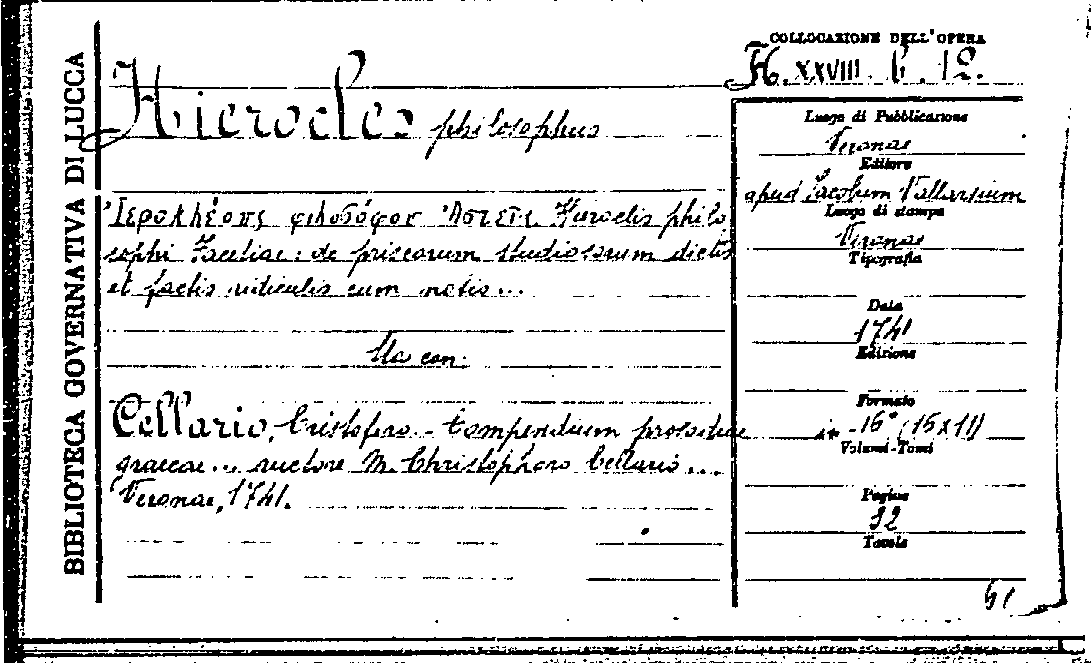 BIBLIOTECA GOVERNATIVA DI LUCCA
COLLOCAZIONE DELL'OPERA
H. XXVIII. b. 12.
Hierocles philosophus
Ἱεροκλέους φιλοσόφου Ἀστεῖα. Hieroclis philo
sophi Facetiae: de priscorum studiosorum dictis
et factis ridiculis cum notis...
Sta con:
Cellario, Cristoforo - Compendium prosodiae
graecae... auctore M. Christophoro Cellario...
Veronae, 1741.
Luogo di Pubblicazione
Veronae
Editore
apud Jacobum Vallarsium
Luogo di stampa
Veronae
Tipografia
Data
1741
Edizione
Formato
in-16° (15x11)
Volumi-Tomi
Pagine
32
Tavole